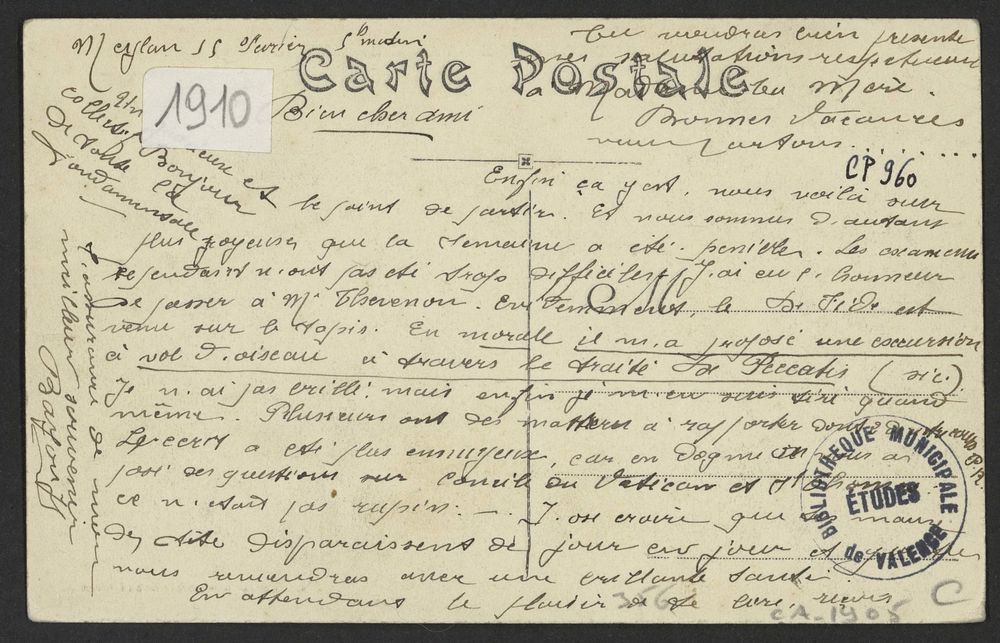 Meylan 15 février 5h matin
Carte Postale
1910
Bien cher ami
Enfin ça y est, nous voilà sur
le point de partir. Et nous sommes d'autant
plus joyeux que la semaine a été pénible. Les examens
cependant n'ont pas été trop difficiles. J'ai eu l'honneur
de passer à Mr Thevenon. Evidemment, le De Fide est
venu sur le tapis. En morale il m'a proposé une excursion
à vol d'oiseau à travers le traité De Peccatis (sic).
Je n'ai pas brillé, mais enfin je m'en suis tiré quand
même. Plusieurs ont des matières à rapporter dont
a été plus ennuyeux, car en Dogme on nous a
posé des questions sur Concile du Vatican et
ce n'était pas rupin. J'ose croire que maux
de tête disparaissent de jour en jour et que
nous reviendras avec une brillante santé.
En attendant le plaisir de te lire, reçois
l'assurance de mon
meilleur souvenir
Tu voudras bien présenter
mes salutations respectueuses
à Madame ta Mère.
Bonnes Vacances
nous partons.........
Bonjour
de toute la
CP 960
BIBLIOTHÈQUE MUNICIPALE
ÉTUDES
de VALENCE
356
C
CA-1905